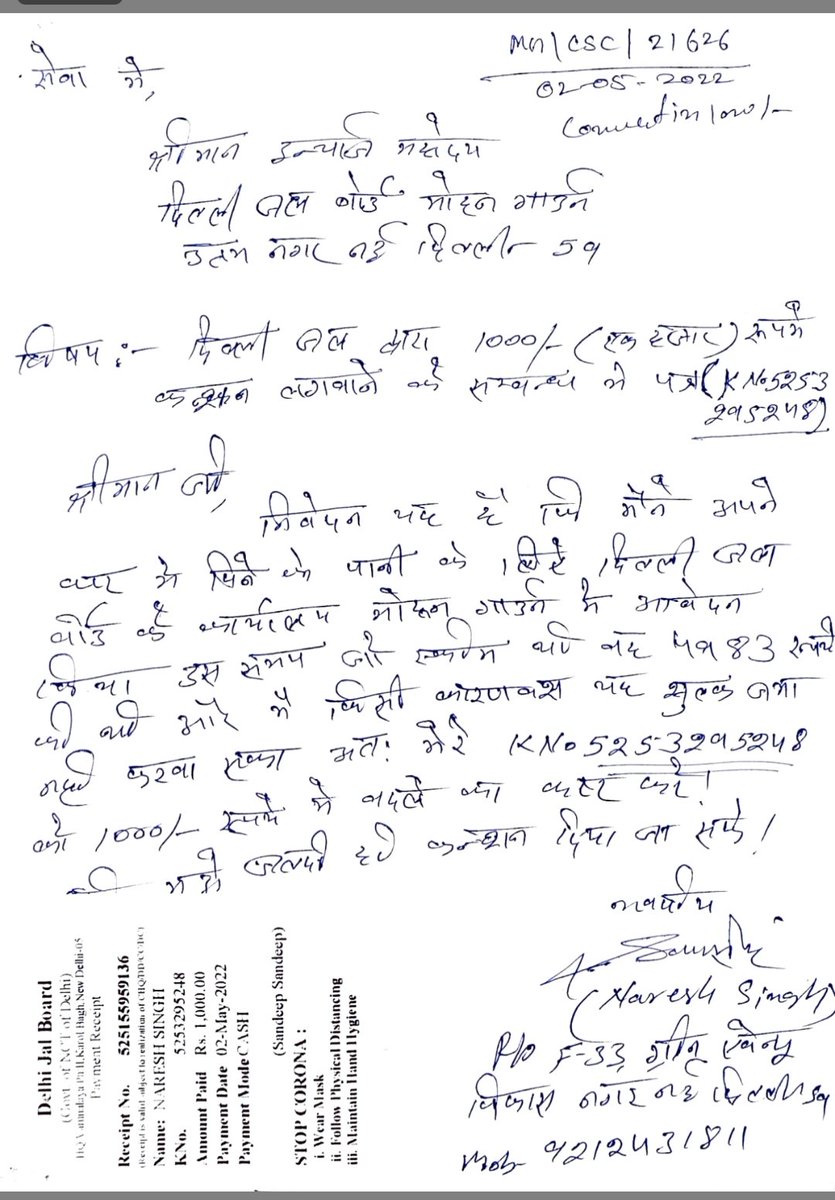 Mn/CSC/21626
02-05-2022
सेवा में,
श्रीमान इन्चार्ज महोदय
दिल्ली जल बोर्ड मोहन गार्डन
उत्तम नगर नई दिल्ली-59
विषय:- दिल्ली जल द्वारा 1000/- (एक हजार) रूपये
कनेक्शन लगवाने के सम्बन्ध मे पत्र (K No 5253
295248)
श्रीमान जी,
निवेदन यह है कि मैने अपने
घर मे पिने के पानी के लिए दिल्ली जल
बोर्ड के कार्यालय मोहन गार्डन मे आवेदन
किया उस समय जो स्कीम थी वह 4983 रूपये
की थी और मै किसी कारणवश यह शुल्क जमा
नही करवा सका अतः मेरे K No 5253295248
को 1000/- रूपये मे बदलने का कष्ट करे।
की मुझे जल्दी ही कनेक्शन दिया जा सके।
भवदीय
(Naresh Singh)
R/o F-33, ग्रीन एवेन्यू
विकास नगर नई दिल्ली 59
Mob 9212431811
Delhi Jal Board
(Govt. of NCT of Delhi)
HQ Varunalaya Ph II, Karol Bagh, New Delhi-05
Payment Receipt
Receipt No. 525155959136
(Receipt is valid subject to realization of CHQ/DD/CC/DC)
Name: NARESH SINGH
KNo. 5253295248
Amount Paid Rs. 1,000.00
Payment Date 02-May-2022
Payment Mode CASH
(Sandeep Sandeep)
STOP CORONA :
i. Wear Mask
ii. Follow Physical Distancing
iii. Maintain Hand Hygiene